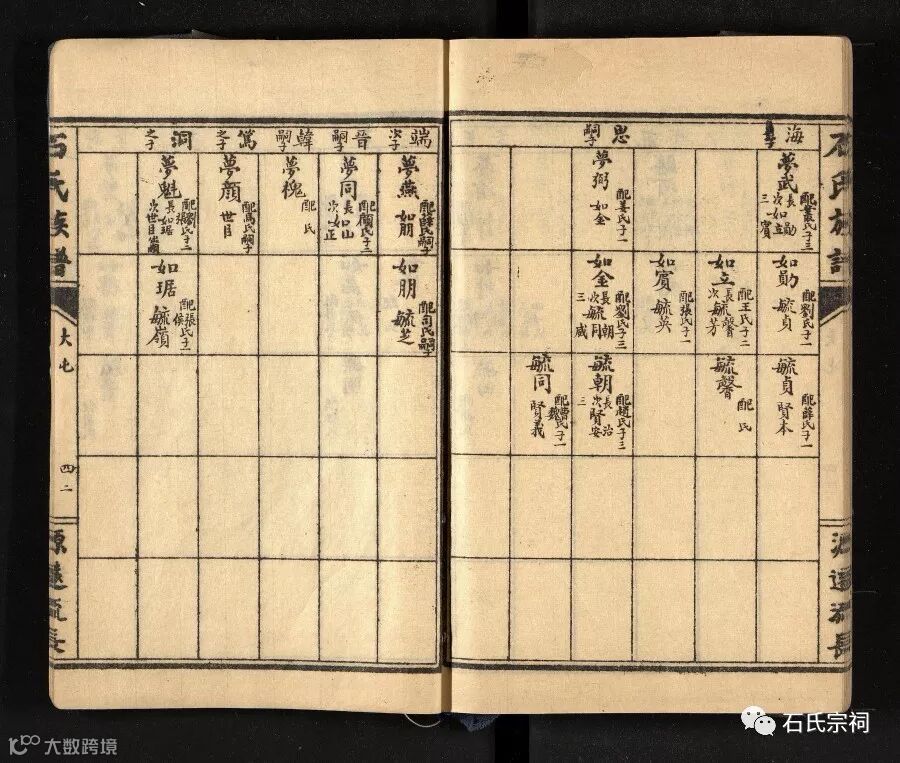 石氏族譜
海
夢武
配董氏子三
長勛
次如立
三賓
如勛
配劉氏子一
毓貞
毓貞
配薛氏子一
賢本
如立
配王氏子二
長馨
次毓芳
毓馨
配 氏
如賓
配張氏子一
毓英
思嗣子
夢弼
配姜氏子一
如金
如金
配劉氏子三
長朝
次毓同
三咸
毓朝
配趙氏子三
長治
次賢安
三
毓同
配曹魏氏子一
賢義
源遠流長
端次子
夢燕
配薛氏嗣子
如朋
如朋
配司氏嗣子
毓芝
晉嗣子
夢同
配顏氏子二
長如山
次正
韓嗣子
夢槐
配 氏
篤之子
夢顏
配馬氏嗣子
世目
洞之子
夢魁
配劉張氏子二
長如琚
次世目
如琚
配張侯氏子一
毓嶺
石氏族譜
大屯
四二
源遠流長
石氏宗祠
大数跨境